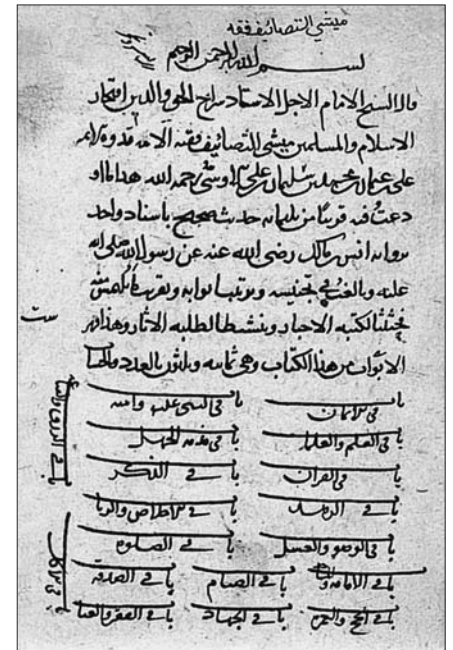 منشئ التصانيف فقه
بسم الله الرحمن الرحيم
قال الشيخ الامام الاجل الاستاد سراج الحق والدين افتخار
الاسلام والمسلمين منشئ التصانيف فقه الامة قدوة الائمة
علي بن عثمان بن محمد بن سليمان بن علي الاوشي رحمه الله هذا ما او
دعت فيه قريبا من ثلثمائة حديث صحيح باسناد واحد
برواية انس بن مالك رضي الله عنه عن رسول الله صلى الله
عليه وبالغت في تجنيسه وترتيب ابوابه وتقريب
لكتبة الاخبار وتنشيطا لطلبة الاثار وهذا فهر
ست
الابواب من هذا الكتاب وهي ثمانية وثلثون بالعدد والحساب
باب في الايمان باب في النهي عليه وامته
باب في العلم والعلماء باب في مذمة الجهل
باب في القران باب في الذكر
باب في الزهد باب في الاخلاص والريا
باب في الوضو والغسل باب في الصلوة
باب في الامامة باب في الصيام باب في الصدقة
باب في الحج والعمرة باب في الجهاد باب في الفقر والغنا